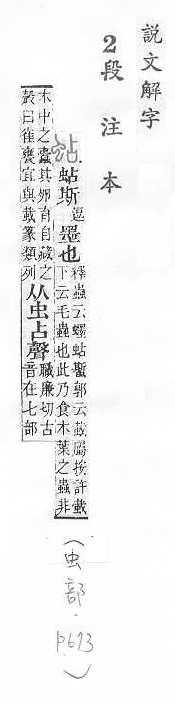 說文解字
2段注本
蛅斯逗墨也
釋蟲云蟔蛅蟴郭云蛓屬按許蛓
下云毛蟲也此乃食木葉之蟲非
木中之蠹其卵自自藏之
㲉曰雀甕宜與蛓篆類列
从虫占聲
職廉切古
音在七部
(虫部.P693)